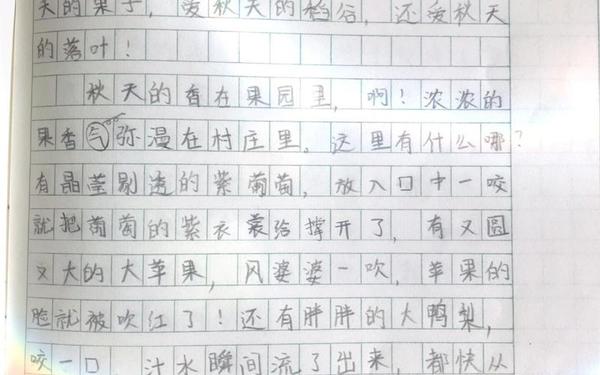 天的果子，爱秋天的稻谷，还爱秋天
的落叶！
秋天的香在果园里，啊！浓浓的
果香气弥漫在村庄里。这里有什么哪？
有晶莹剔透的紫葡萄，放入口中一咬
就把葡萄的紫衣裳给撑开了，有又圆
又大的大苹果，风婆婆一吹，苹果的
脸就被吹红了！还有胖胖的大鸭梨，
咬一口，汁水瞬间流了出来，都快从